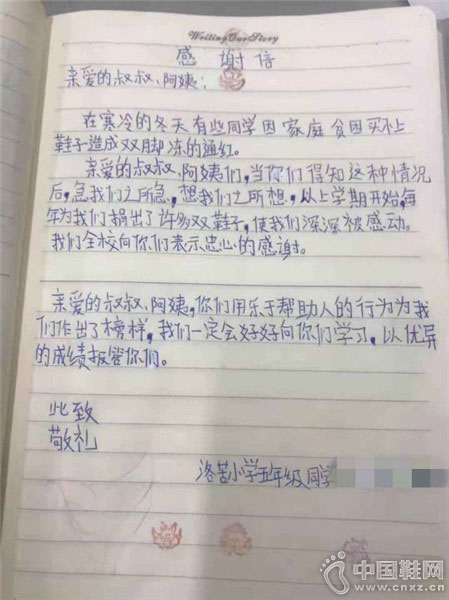 Writing Our Story
感谢信
亲爱的叔叔、阿姨:
在寒冷的冬天有些同学因家庭贫困买不上
鞋子造成双脚冻的通红。
亲爱的叔叔、阿姨们,当你们得知这种情况
后,急我们之所急,想我们之所想,从上学期开始,每
年为我们捐出了许多双鞋子,使我们深深被感动。
我们全校向你们表示忠心的感谢。
亲爱的叔叔、阿姨,你们用乐于帮助人的行为为我
们作出了榜样,我们一定会好好向你们学习,以优异
的成绩报答你们。
此致
敬礼
洛苦小学五年级同学
中国鞋网
www.cnxz.cn